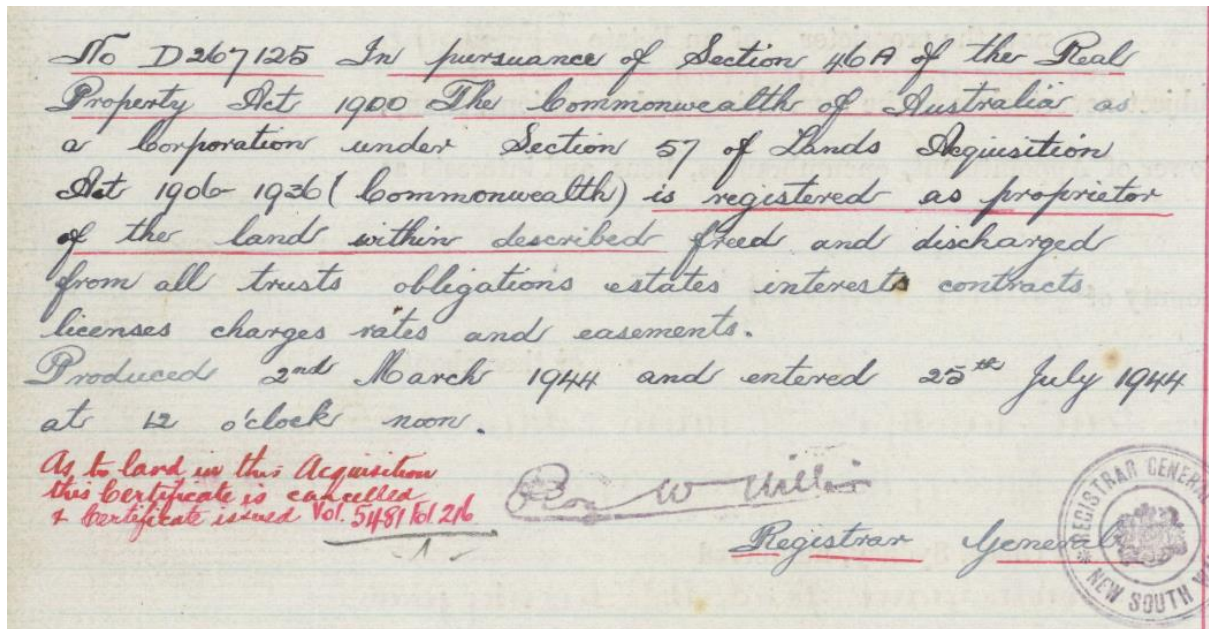 No D267125 In pursuance of Section 46A of the Real
Property Act 1900 The Commonwealth of Australia as
a Corporation under Section 57 of Lands Acquisition
Act 1906-1936 (Commonwealth) is registered as proprietor
of the land within described freed and discharged
from all trusts obligations estates interests contracts
licenses charges rates and easements.
Produced 2nd March 1944 and entered 25th July 1944
at 12 o'clock noon.
As to land in this Acquisition
this Certificate is cancelled
& Certificate issued Vol. 5481 Fol. 216
Registrar General
REGISTRAR GENERAL
NEW SOUTH